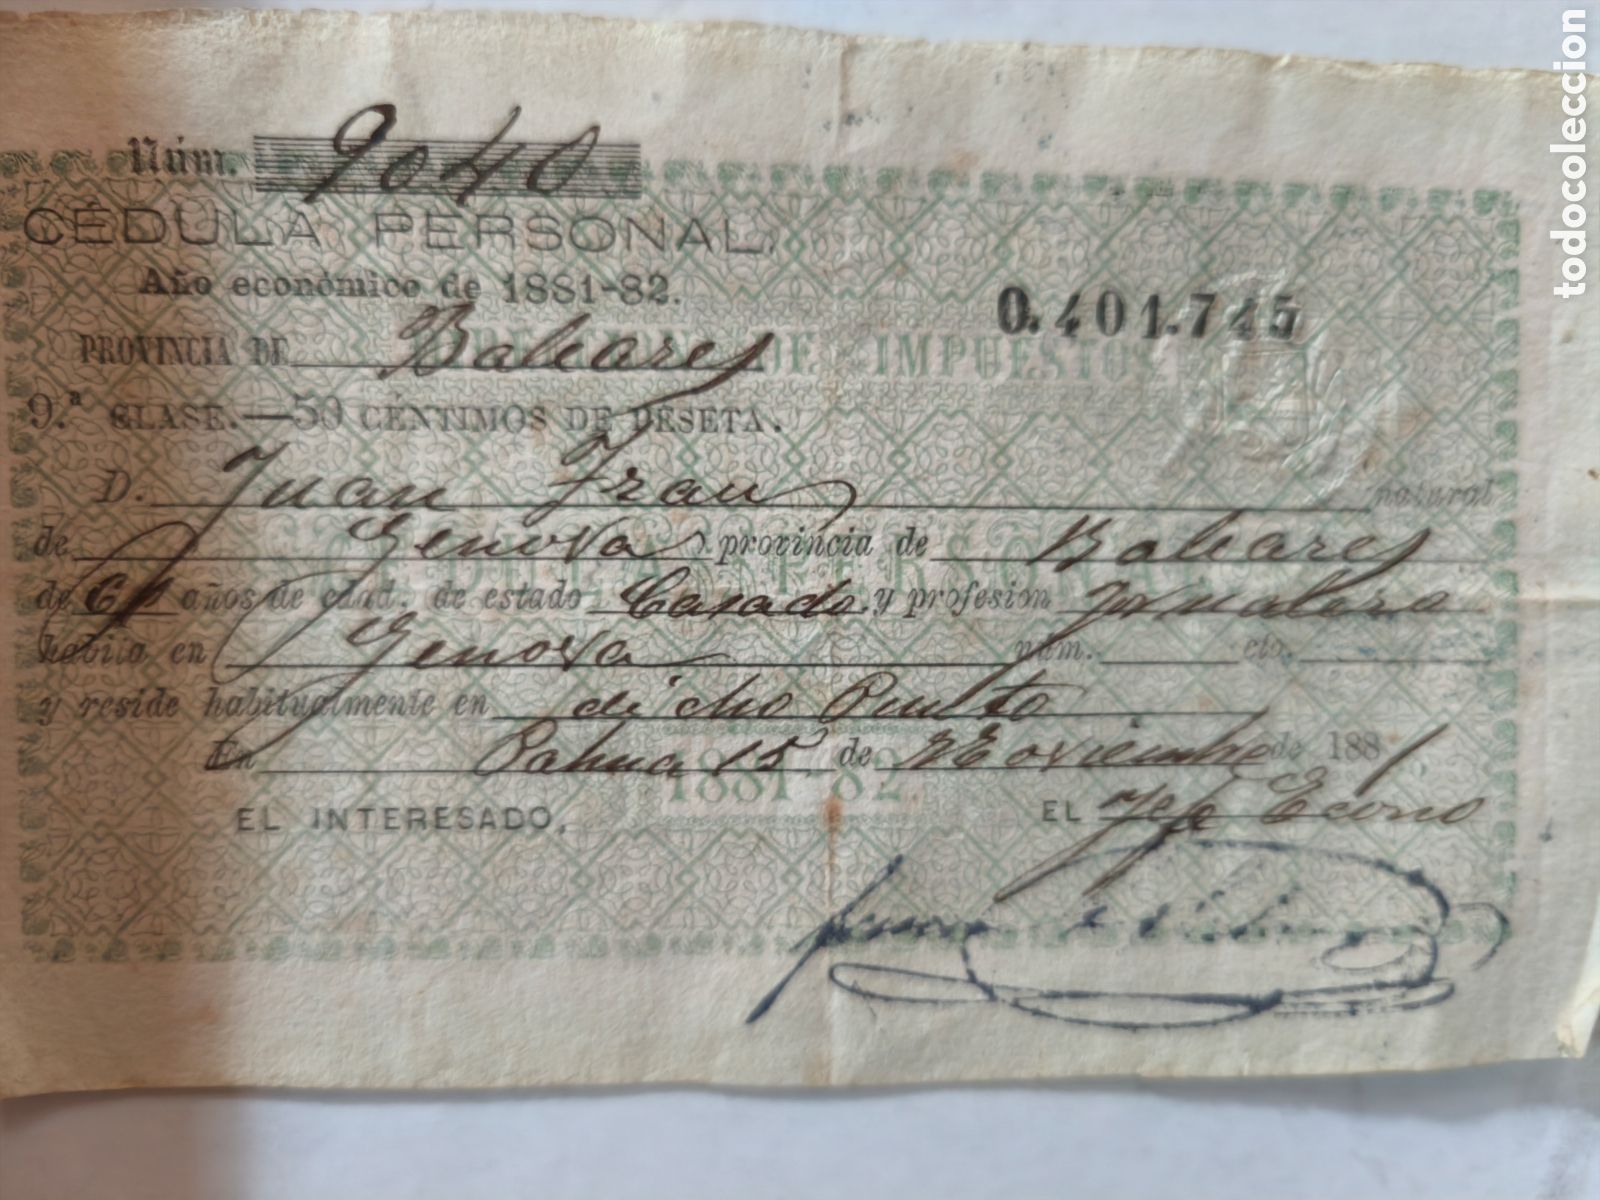 Núm. 9040
CÉDULA PERSONAL.
Año económico de 1881-82.
0.401.745
PROVINCIA DE Baleares
DE IMPUESTOS
9.ª CLASE.—50 CÉNTIMOS DE PESETA.
D. Juan Frau natural
de Genova provincia de Baleares
de años de edad, de estado Casado y profesion Jornalero
habita en Genova núm. cto.
y reside habitualmente en dicho Punto
En Palma 15 de Noviembre de 1881
1881 82
EL INTERESADO,
EL Jefe Econo
todocoleccion